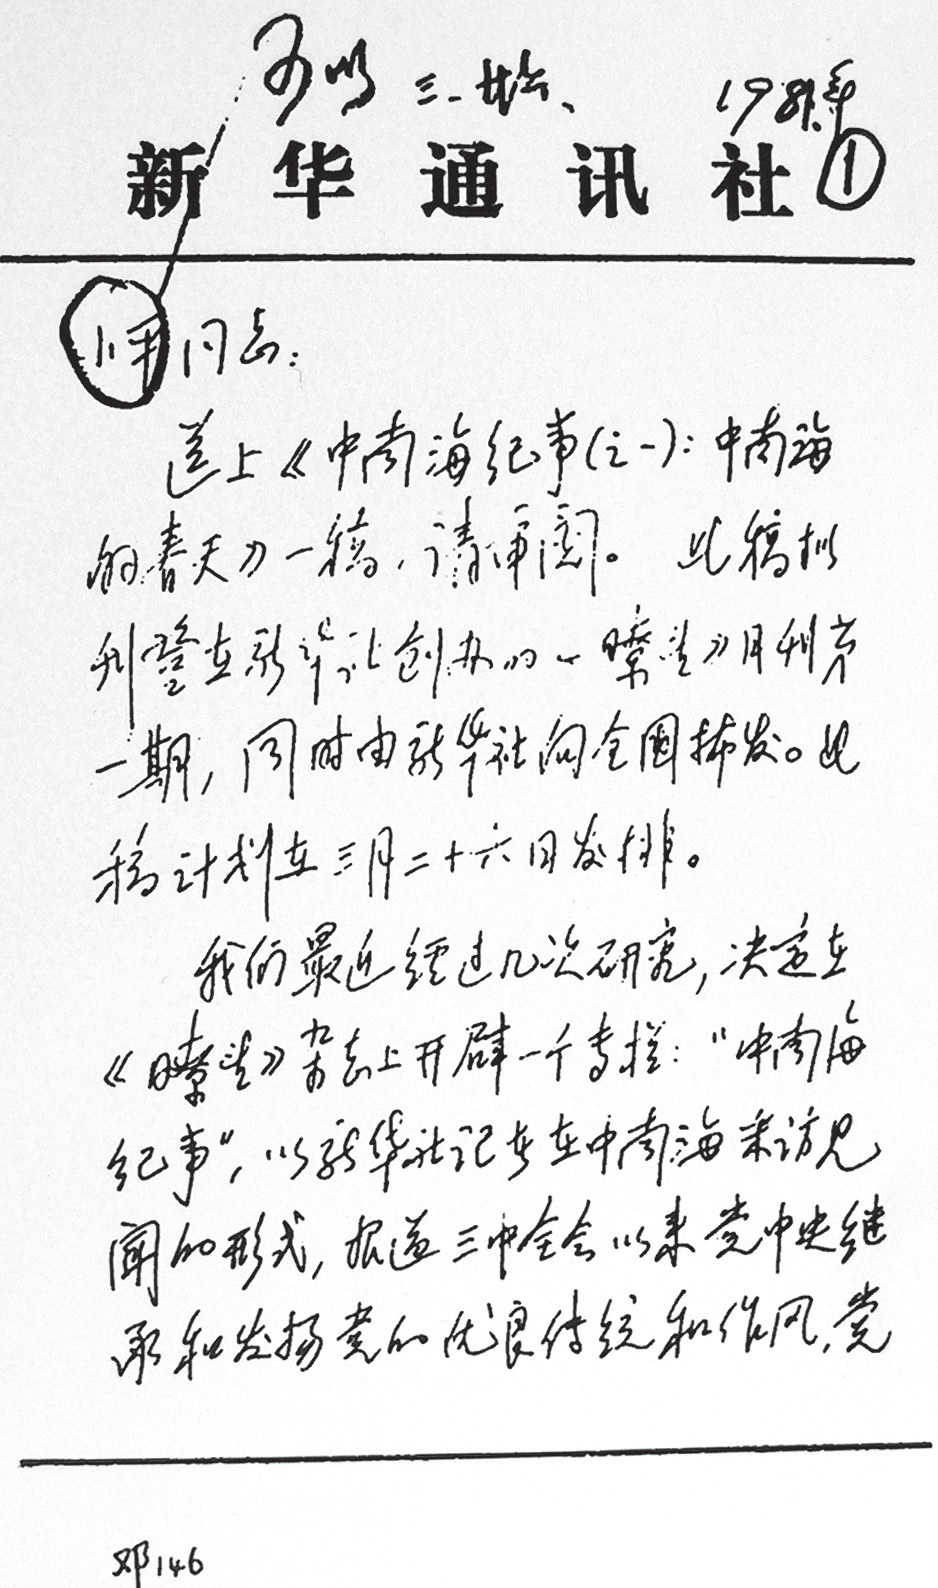 可以 三.廿六、 1981年
新华通讯社 ①
小平同志：
送上《中南海纪事(之一)：中南海
的春天》一稿，请审阅。此稿拟
刊登在新华社创办的《瞭望》月刊第
一期，同时由新华社向全国播发。此
稿计划在三月二十六日发排。
我们最近经过几次研究，决定在
《瞭望》杂志上开辟一个专栏："中南海
纪事"，以新华社记者在中南海采访见
闻的形式，报道三中全会以来党中央继
承和发扬党的优良传统和作风，党
邓146